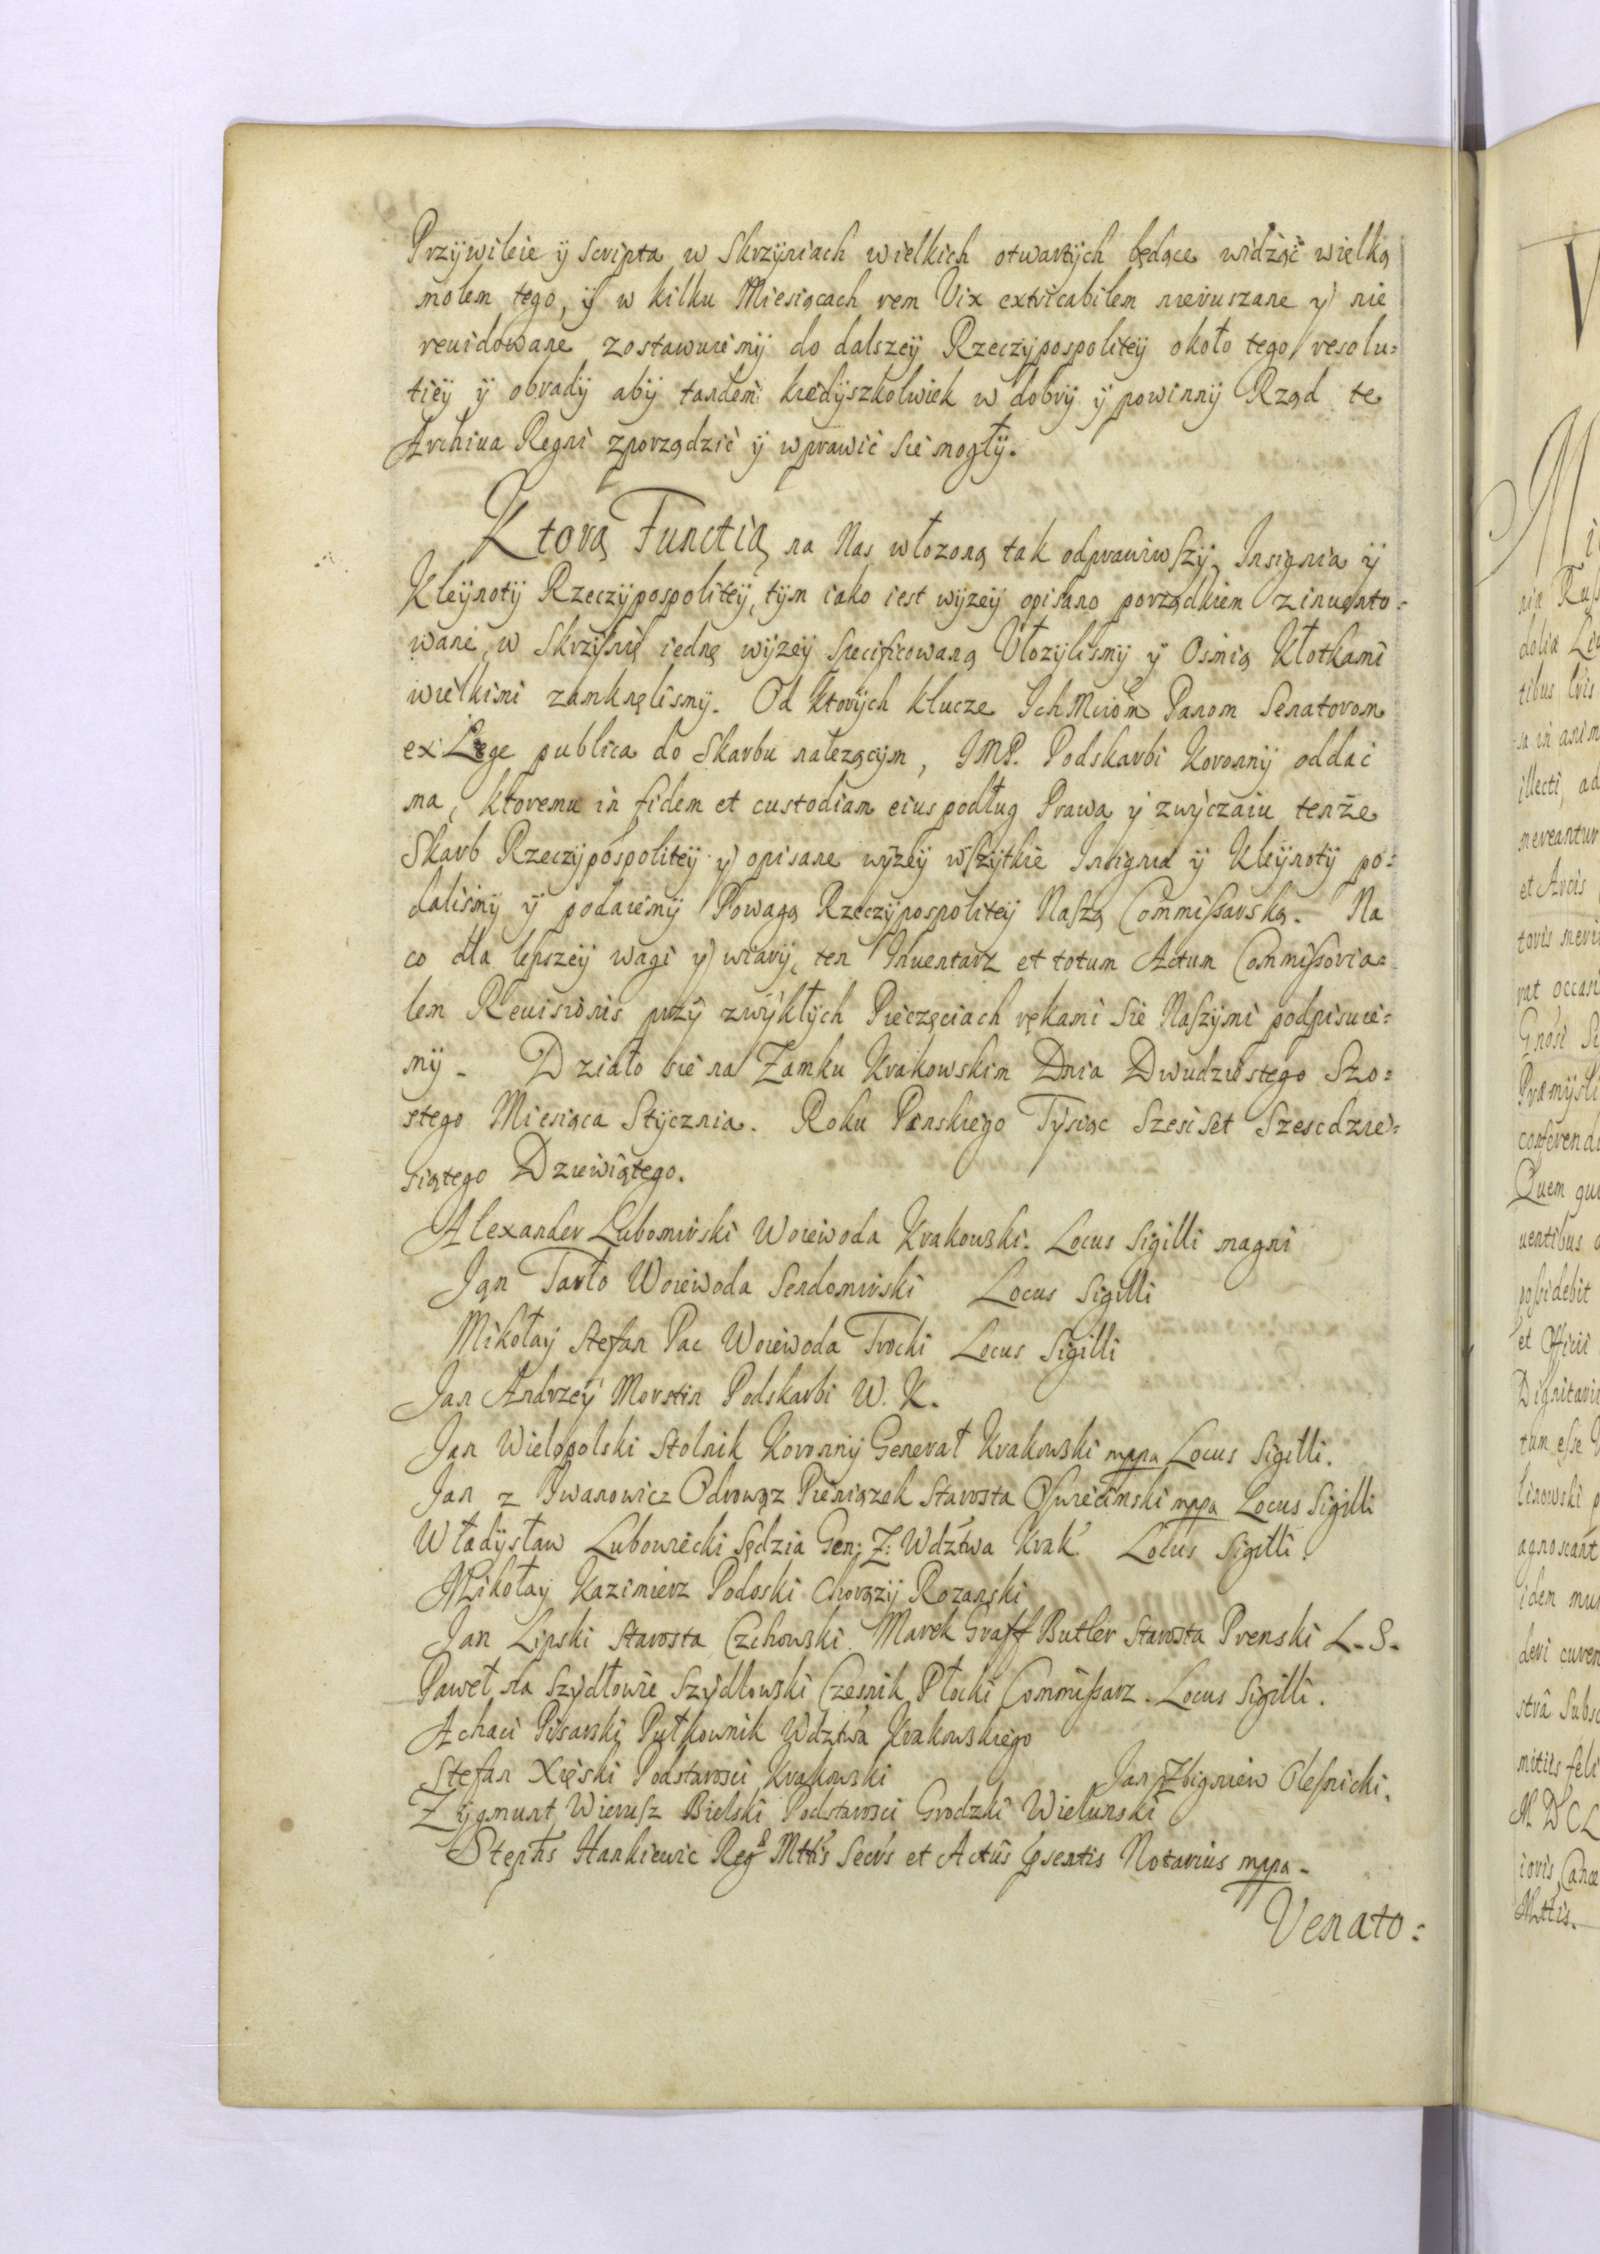 Przywileie ÿ scripta w Skrzyniach wielkich otwartych będące widząc wielką
molem tego, ÿ w kilku Miesiącach rem Vix extricabilem nieruszane y nie
reuidowane zostawuiemÿ do dalszeÿ Rzeczÿpospoliteÿ około tego resolu=
tieÿ ÿ obradÿ abÿ tandem kiedÿszkolwiek w dobrÿ ÿ powinnÿ Rząd te
Archiua Regni zporządzić ÿ wprawić sie mogłÿ.
Ktorą Functią na Nas włozoną tak odprawiwszÿ, Insignia ÿ
Kleÿnotÿ Rzeczÿpospoliteÿ, tÿm iako iest wÿzeÿ opisano porządkiem zinuento=
wane, w Skrzÿnię iednę wÿzeÿ specificowaną Vłozÿlismÿ ÿ Osmią Kłotkami
wielkimi zamknęlismÿ. Od ktorÿch klucze IchMciom Panom Senatorom
ex Lege publica do Skarbu nalezącÿm, IMP. Podskarbi Koronnÿ oddać
ma, ktoremu in fidem et custodiam eius podług Prawa ÿ zwÿczaiu tenże
Skarb Rzeczÿpospoliteÿ ÿ opisane wÿzeÿ wszÿtkie Insignia ÿ Kleÿnotÿ po=
dalismÿ ÿ podaiemÿ Powagą Rzeczÿpospoliteÿ Naszą Commissarską. Na
co dla lepszeÿ wagi ÿ wiarÿ, ten Inuentarz et totum Actum Commissoria=
lem Reuisionis przÿ zwÿkłÿch Pieczęciach rękami sie Naszÿmi podpisuie=
mÿ. Działo sie na Zamku Krakowskim Dnia Dwudziestego Szo=
stego Miesiąca Stÿcznia. Roku Panskiego Tÿsiąc Szescset Szescdzie=
siątego Dziewiątego.
Alexander Lubomirski Woiewoda Krakowski. Locus Sigilli magni
Jan Tarło Woiewoda Sendomirski Locus Sigilli
Mikołaÿ Stefan Pac Woiewoda Trocki Locus Sigilli
Jan Andrzeÿ Morstin Podskarbi W. K.
Jan Wielopolski Stolnik Koronnÿ Generał Krakowski mppa Locus Sigilli.
Jan z Iwanowicz Odrowąz Pieniązek Starosta Oswiecimski mppa Locus Sigilli
Władÿsław Lubowiecki Sędzia Gen: Z: Wdztwa Krak. Locus Sigilli.
Mikołaÿ Kazimierz Podoski Chorązÿ Rozanski
Jan Lipski Starosta Czchowski. Marek Graff Butler Starosta Prenski L. S.
Paweł na Szÿdłowie Szÿdłowski Czesnik Płocki Commissarz. Locus Sigilli.
Achaci Pisarski Pułkownik Wdztwa Krakowskiego
Stefan Xięski Podstarosci Krakowski Jan Zbigniew Olesnicki.
Zÿgmunt Wierusz Bielski Podstarosci Grodzki Wielunski
Stephs Hankiewic Reg. Mttis Secrs et Actûs Psentis Notarius mppa.
Venato=